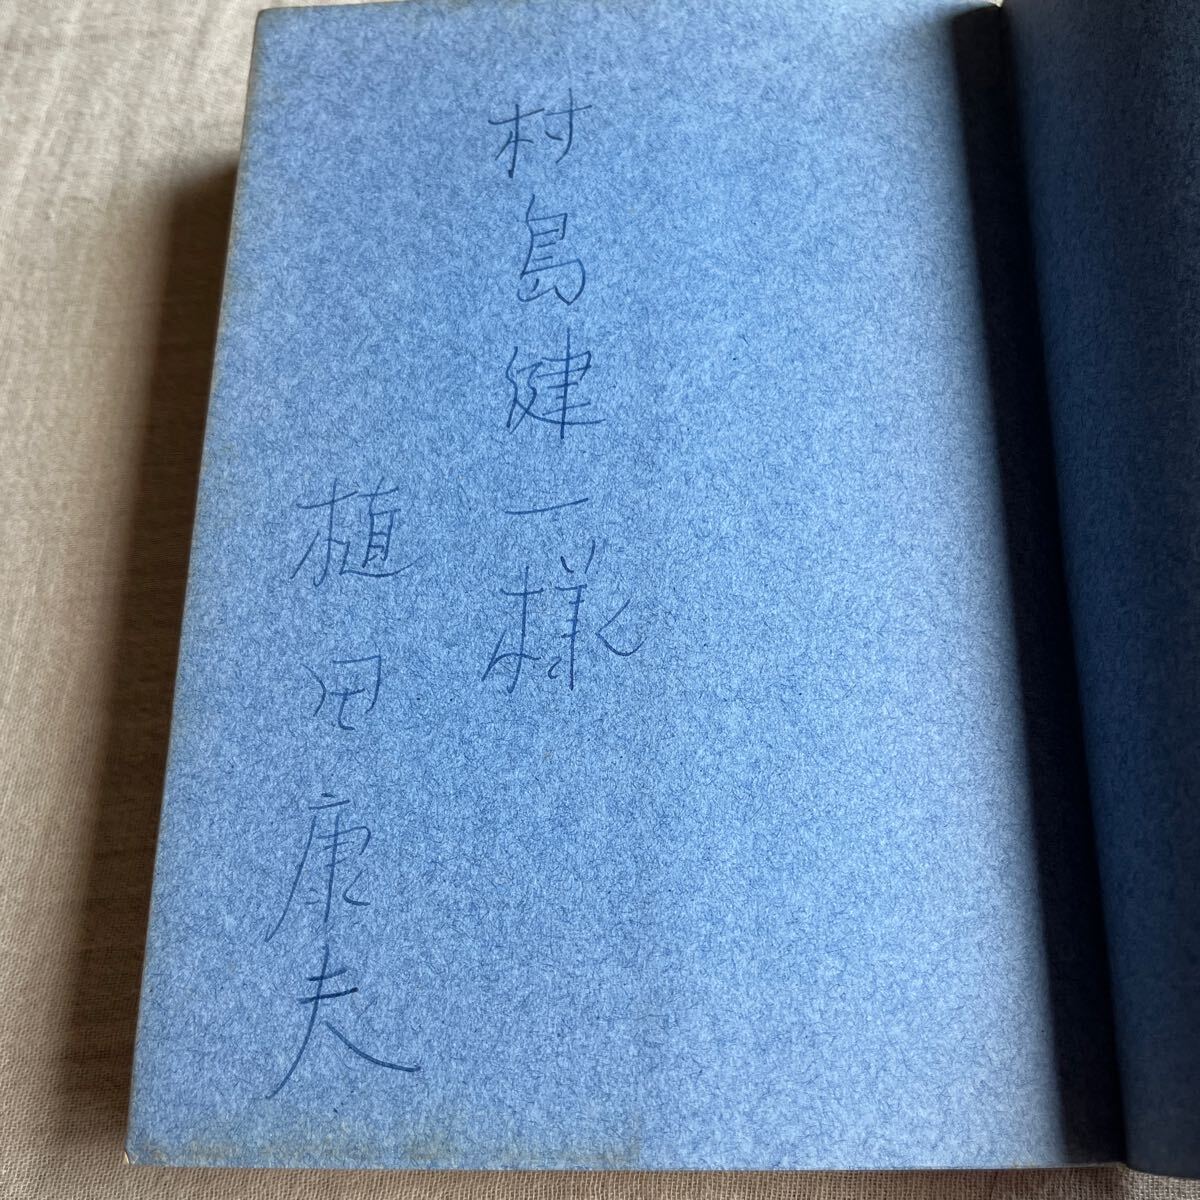 村島健一様
植田康夫